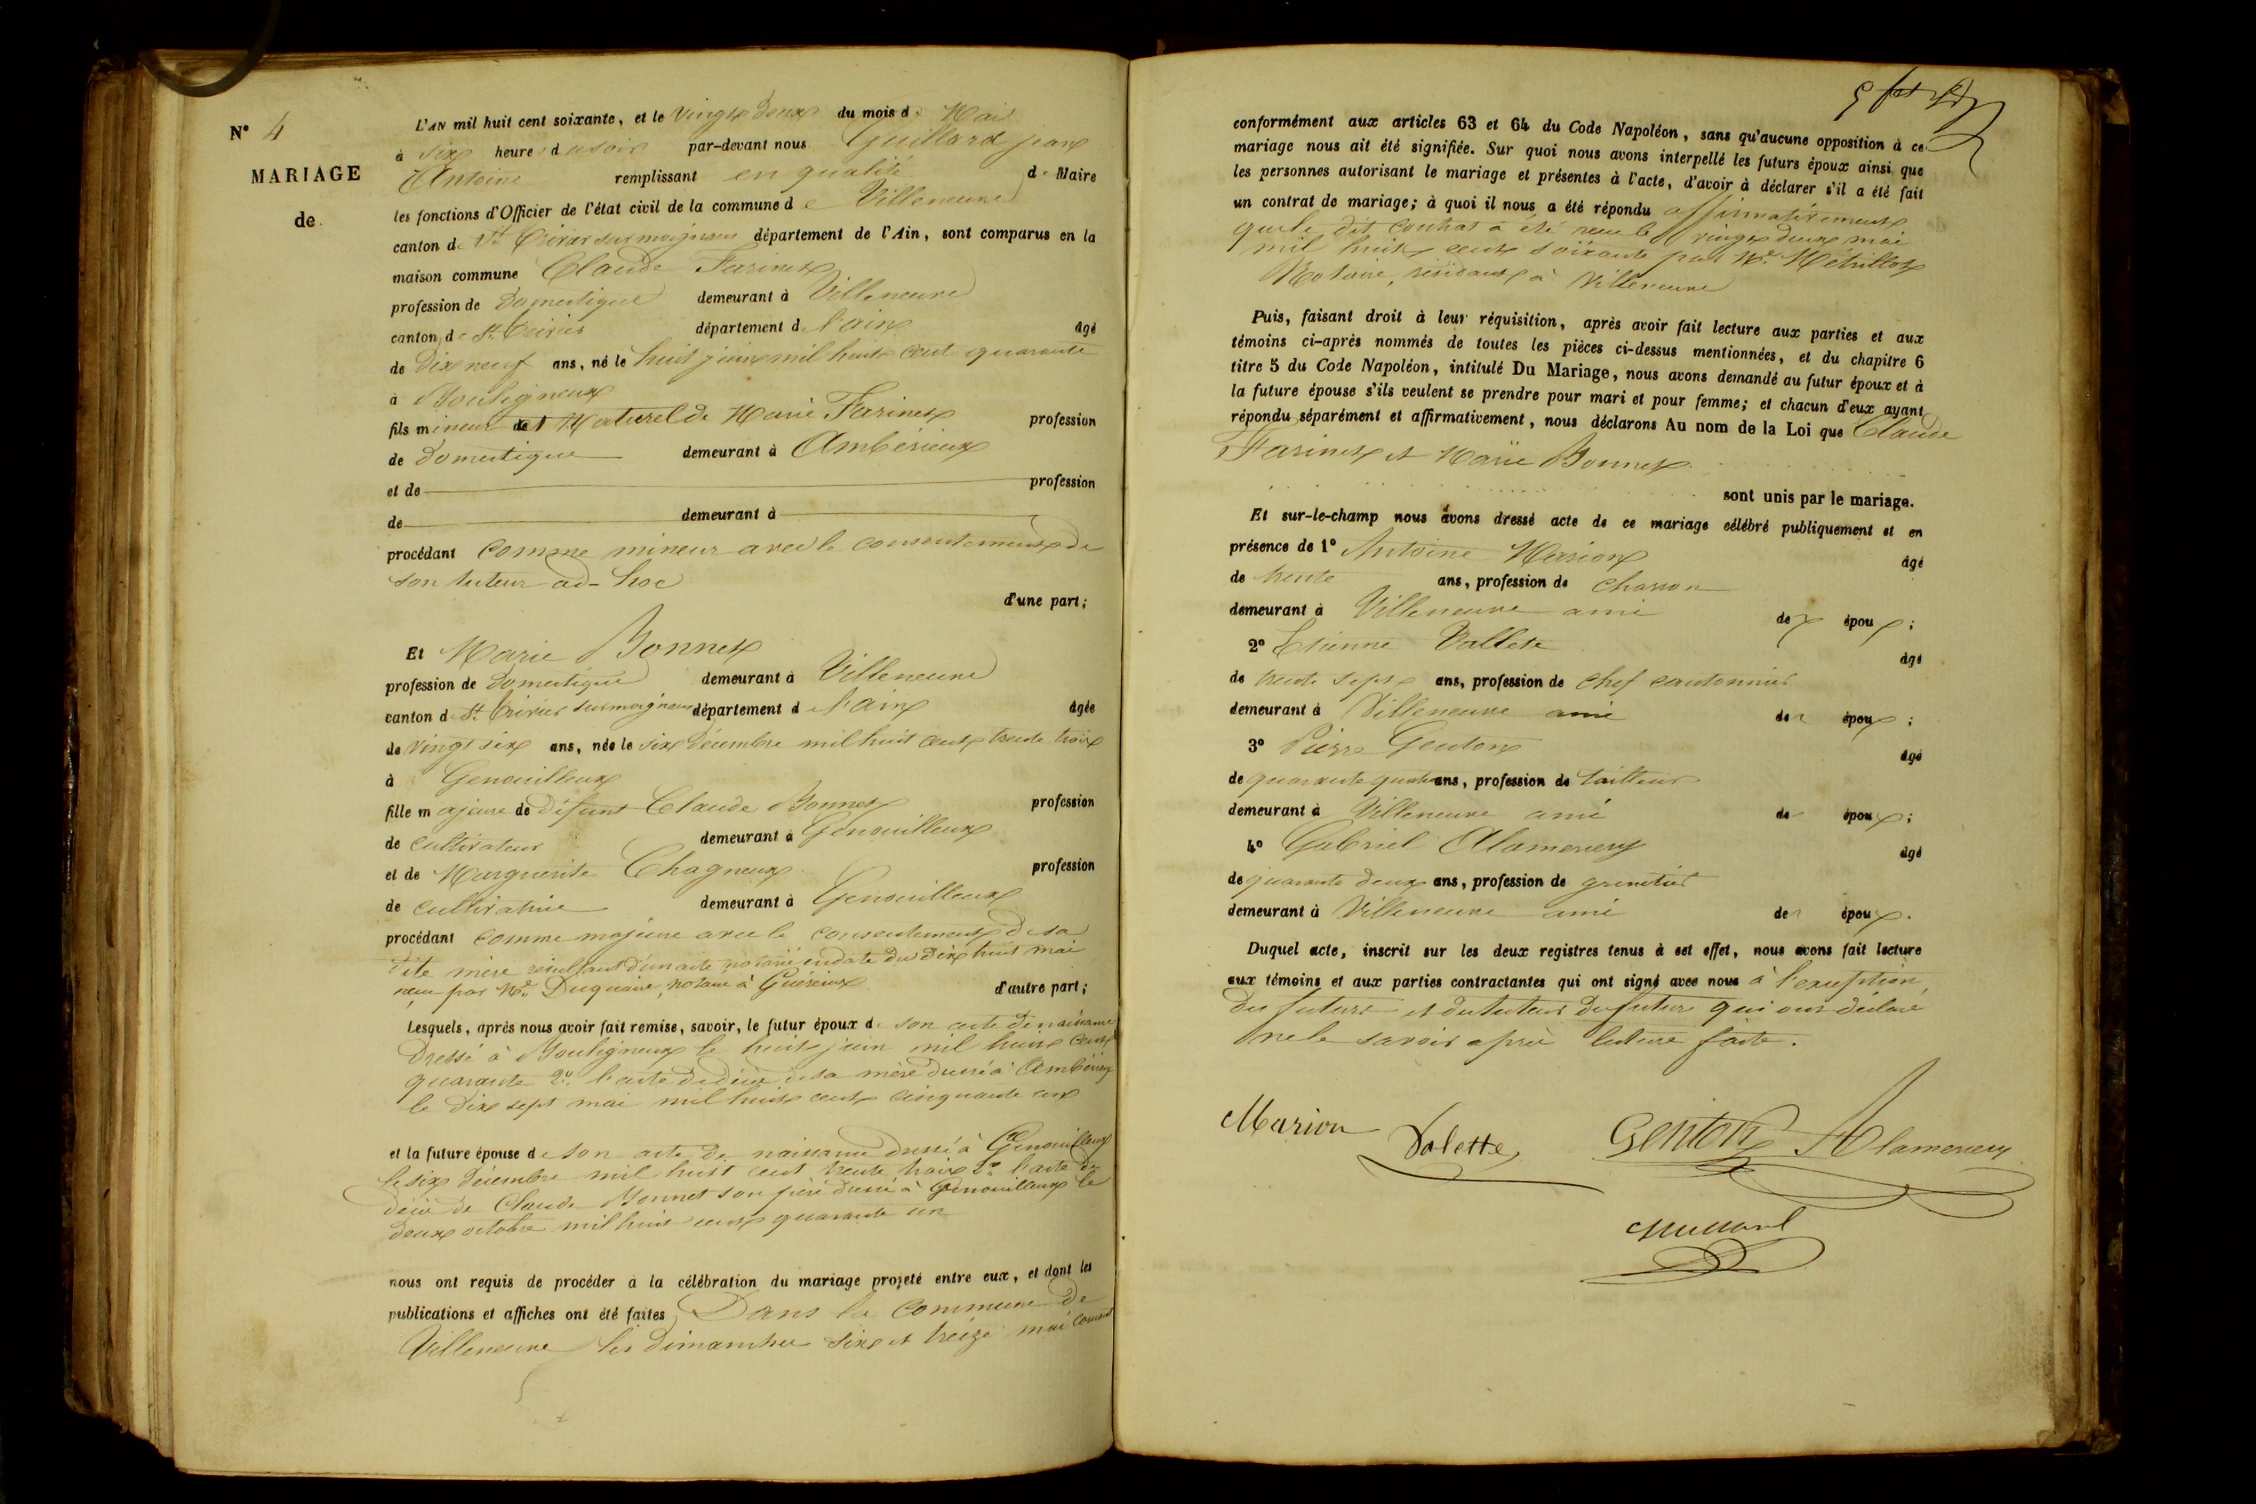 N° 4
MARIAGE
de
L'AN mil huit cent soixante, et le vingt deux du mois de Mai
à six heures du soir par-devant nous Guillard jean
Antoine remplissant en qualité de Maire
les fonctions d'Officier de l'état civil de la commune de Villeneuve
canton de St Trivier sur moignans département de l'Ain, sont comparus en la
maison commune Claude Farinet
profession de domestique demeurant à Villeneuve
canton de St Trivier département de l'ain âgé
de dix neuf ans, né le huit juin mil huit cent quarante
à Bouligneux
fils mineur et Naturel de Marie Farinet profession
de domestique demeurant à Ambérieux
et de profession
de demeurant à
procédant comme mineur avec le consentement de
son tuteur ad-hoc
d'une part;
Et Marie Bonnet
profession de domestique demeurant à Villeneuve
canton de St Trivier sur moignans département de l'ain âgée
de vingt six ans, née le six décembre mil huit cent trente trois
à Genouilleux
fille majeure de défunt Claude Bonnet profession
de cultivateur demeurant à Genouilleux
et de Marguerite Chagneux profession
de cultivatrice demeurant à Genouilleux
procédant comme majeure avec le consentement de sa
dite mère résultant d'un acte notarié en date du dix huit mai
reçu par Me Duquaire, notaire à Guéreins d'autre part;
Lesquels, après nous avoir fait remise, savoir, le futur époux de son acte de naissance
dressé à Bouligneux le huit juin mil huit cent
quarante 2° l'acte de décès de sa mère dressé à Ambérieux
le dix sept mai mil huit cent cinquante un
et la future épouse de son acte de naissance dressé à Genouilleux
le six décembre mil huit cent trente trois 2° l'acte de
décès de Claude Bonnet son père dressé à Genouilleux le
deux octobre mil huit cent quarante un
nous ont requis de procéder à la célébration du mariage projeté entre eux, et dont les
publications et affiches ont été faites Dans la commune de
Villeneuve les dimanches six et treize mai courant
conformément aux articles 63 et 64 du Code Napoléon, sans qu'aucune opposition à ce
mariage nous ait été signifiée. Sur quoi nous avons interpellé les futurs époux ainsi que
les personnes autorisant le mariage et présentes à l'acte, d'avoir à déclarer s'il a été fait
un contrat de mariage; à quoi il nous a été répondu affirmativement
que le dit contrat a été reçu le vingt deux mai
mil huit cent soixante par Me Métrillot
Notaire, résidant à Villeneuve
Puis, faisant droit à leur réquisition, après avoir fait lecture aux parties et aux
témoins ci-après nommés de toutes les pièces ci-dessus mentionnées, et du chapitre 6
titre 5 du Code Napoléon, intitulé Du Mariage, nous avons demandé au futur époux et à
la future épouse s'ils veulent se prendre pour mari et pour femme; et chacun d'eux ayant
répondu séparément et affirmativement, nous déclarons Au nom de la Loi que Claude
Farinet et Marie Bonnet
sont unis par le mariage.
Et sur-le-champ nous avons dressé acte de ce mariage célébré publiquement et en
présence de 1° Antoine Marion âgé
de trente ans, profession de charron
demeurant à Villeneuve ami des époux;
2° Etienne Vallete âgé
de trente sept ans, profession de chef cantonnier
demeurant à Villeneuve ami des époux;
3° Pierre Genton âgé
de quarante quatre ans, profession de tailleur
demeurant à Villeneuve ami des époux;
4° Gabriel Alamercery âgé
de quarante deux ans, profession de grenetier
demeurant à Villeneuve ami des époux.
Duquel acte, inscrit sur les deux registres tenus à cet effet, nous avons fait lecture
aux témoins et aux parties contractantes qui ont signé avec nous à l'exception
des futurs et du tuteur du futur qui ont déclaré
ne le savoir après lecture faite.
Marion Valette Genton Alamercery
Guillard